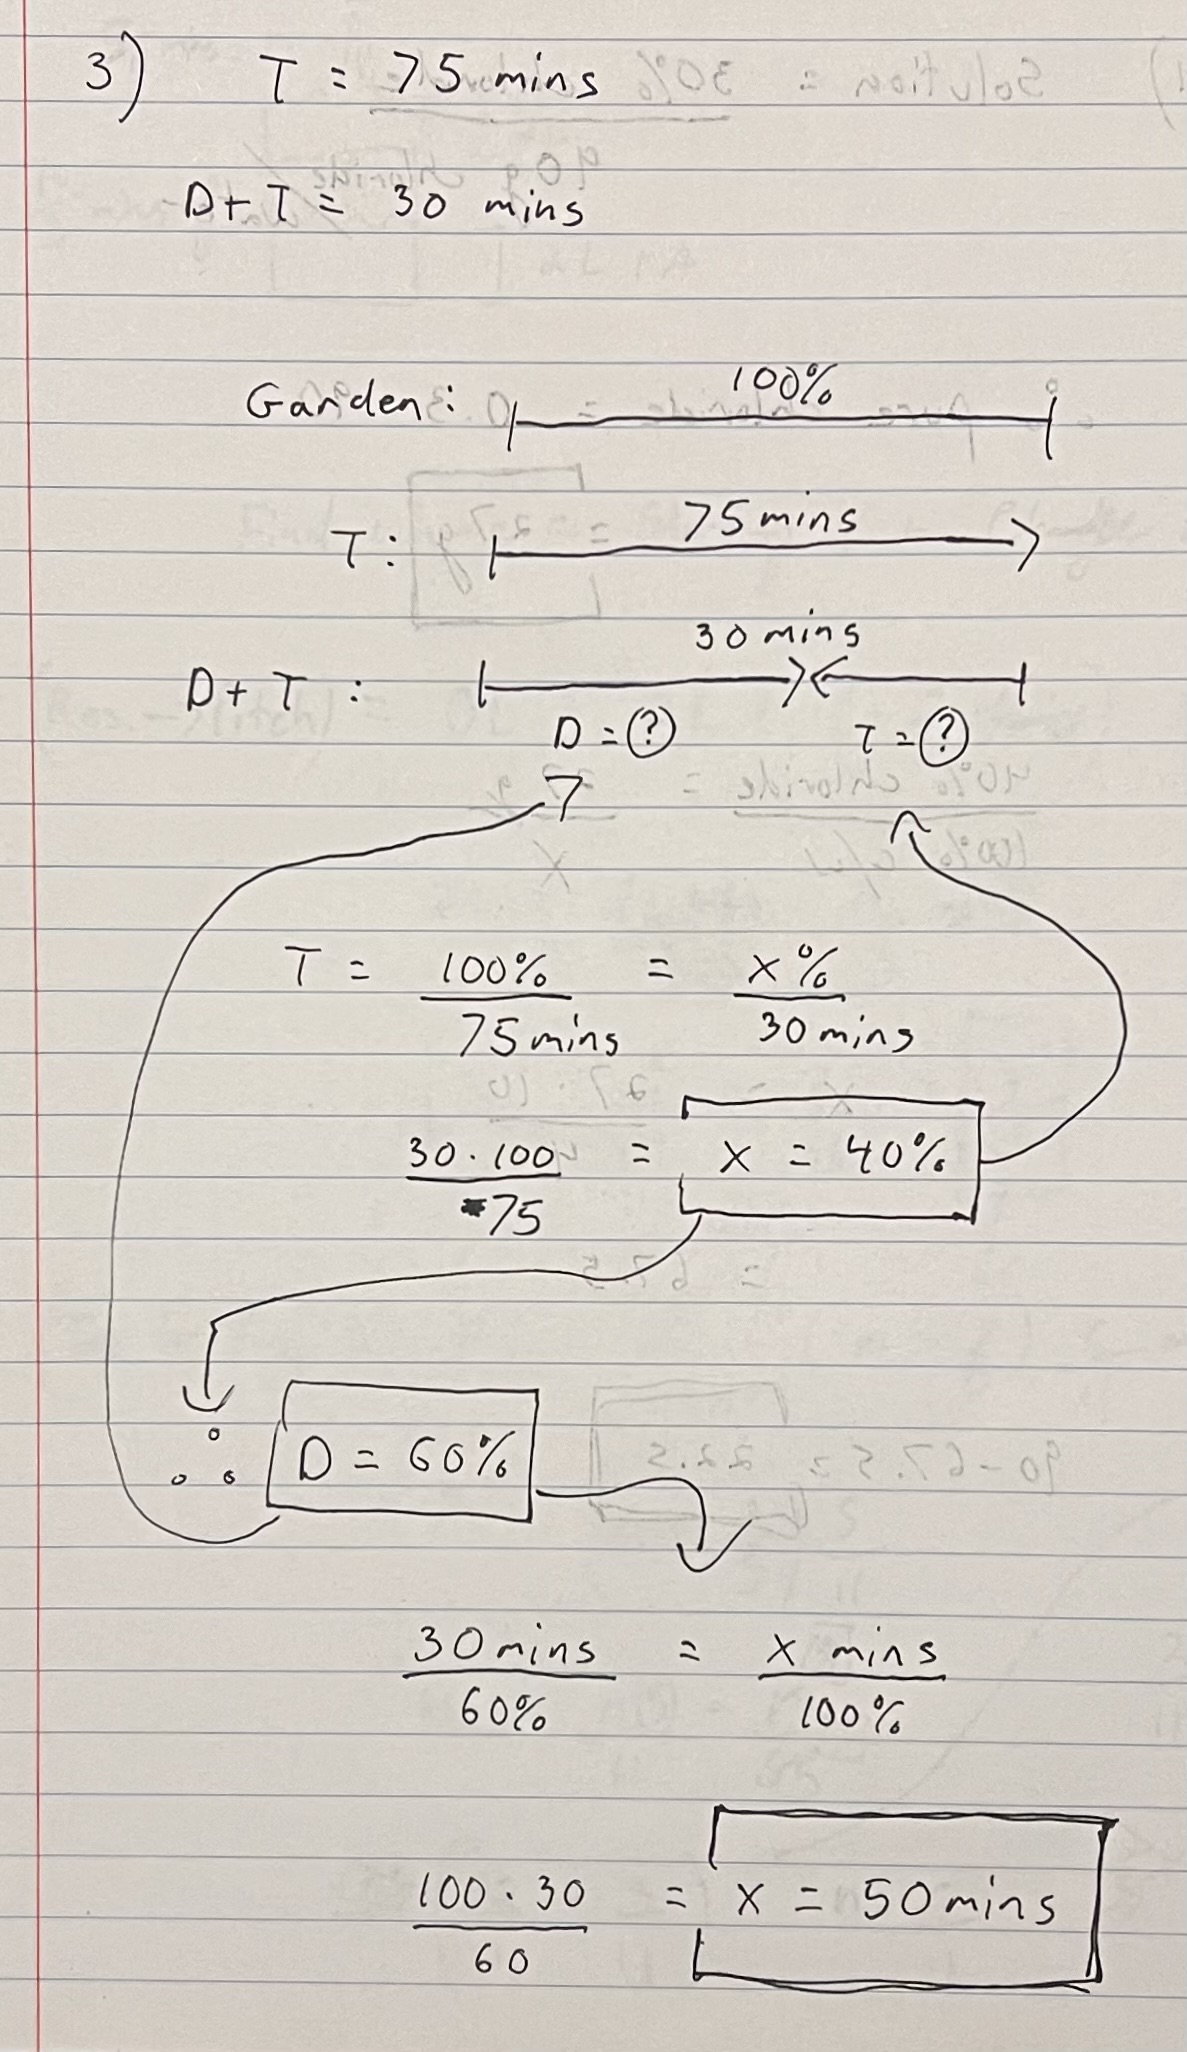 3) T = 75 mins
D + T = 30 mins
Garden: 100%
T: 75 mins
D + T : 30 mins
D = ? T = ?
T = 100% / 75 mins = x% / 30 mins
30 · 100 / 75 = x = 40%
∴ D = 60%
30 mins / 60% = x mins / 100%
100 · 30 / 60 = x = 50 mins